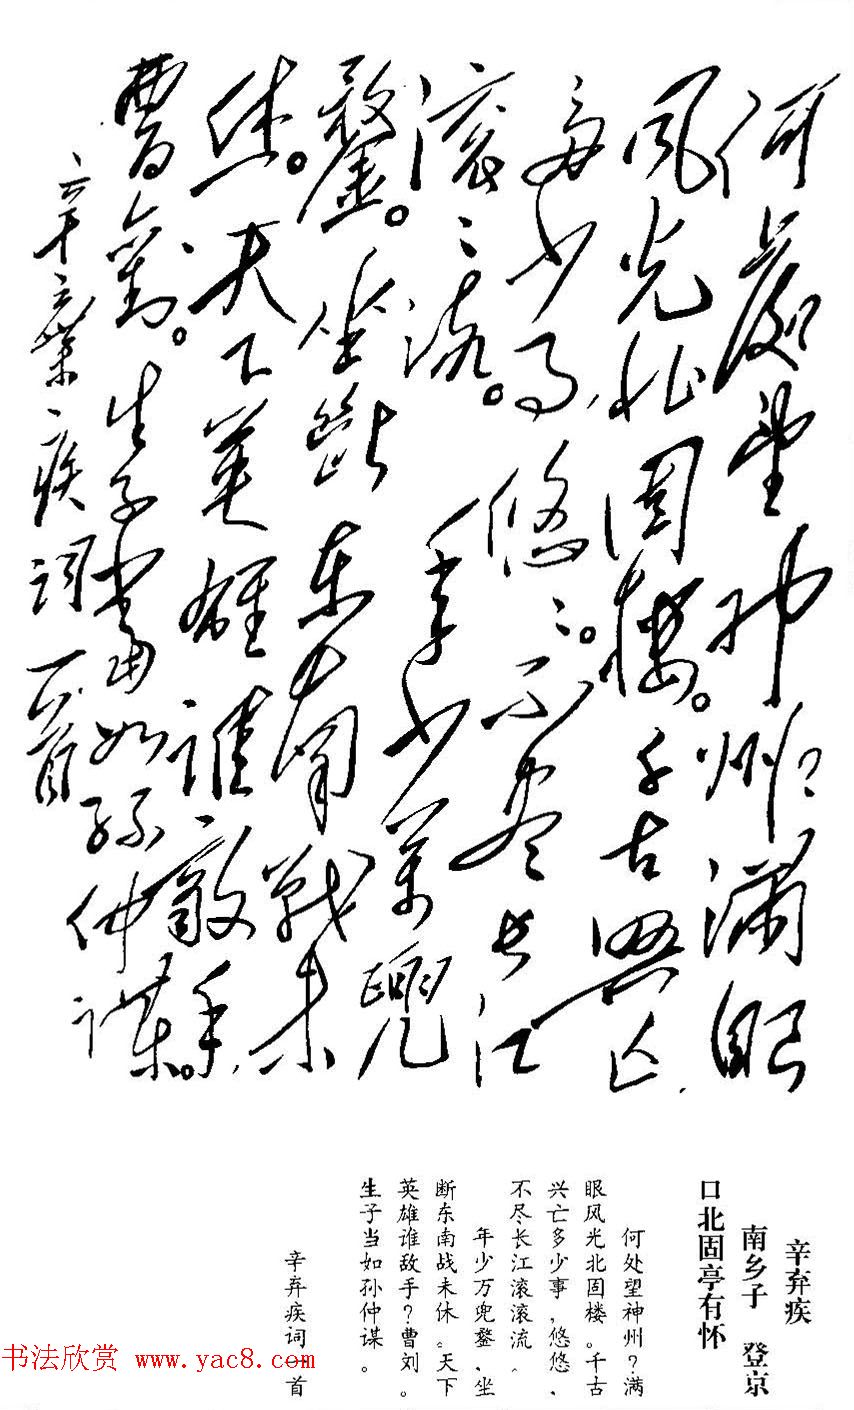 何處望神州满眼
风光北固楼。千古興亡，
多少事，悠〻。不盡长江
滚〻流。
年少萬兜
鍪。坐斷东南战未
休。天下英雄谁敵手，
曹劉。生子當如孙仲谋。
辛弃疾词一首
辛弃疾
南乡子 登京
口北固亭有怀
何处望神州？满
眼风光北固楼。千古
兴亡多少事，悠悠，
不尽长江滚滚流。
年少万兜鍪，坐
断东南战未休。天下
英雄谁敌手？曹刘。
生子当如孙仲谋。
辛弃疾词一首
书法欣赏 www.yac8.com